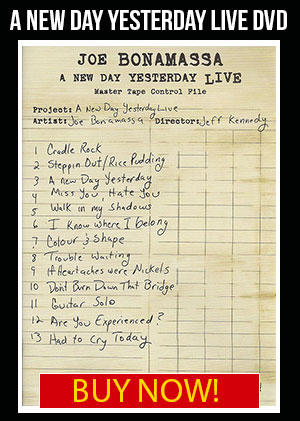 A NEW DAY YESTERDAY LIVE DVD
JOE BONAMASSA
A NEW DAY YESTERDAY LIVE
Master Tape Control File
Project: A New Day Yesterday Live
Artist: Joe Bonamassa Director: Jeff Kennedy
1 Cradle Rock
2 Steppin Out/Rice Pudding
3 A new Day Yesterday
4 Miss You, Hate You
5 Walk in my Shadows
6 I Know Where I belong
7 Colour & Shape
8 Trouble Waiting
9 If Heartaches were Nickels
10 Dont Burn Down That Bridge
11 Guitar Solo
12 Are You Experienced?
13 Had to Cry Today
BUY NOW!